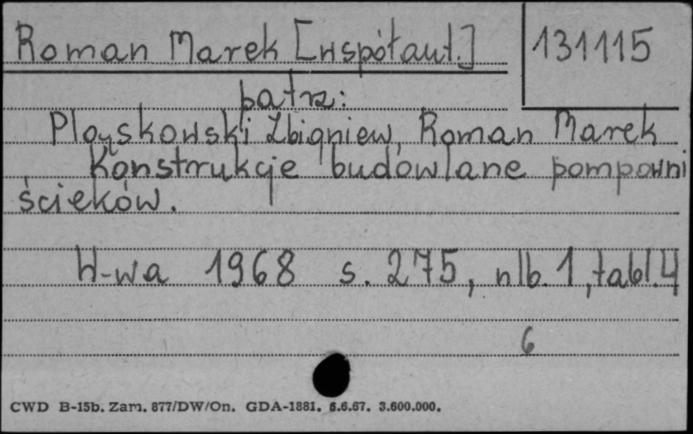 Roman Marek [współaut.] 131115
patrz:
Płoyskowski Zbigniew, Roman Marek
Konstrukcje budowlane pompowni
ścieków.
W-wa 1968 s. 275, nlb. 1, tabl. 4
6
CWD B-15b. Zam. 877/DW/On. GDA-1881. 6.6.67. 3.600.000.